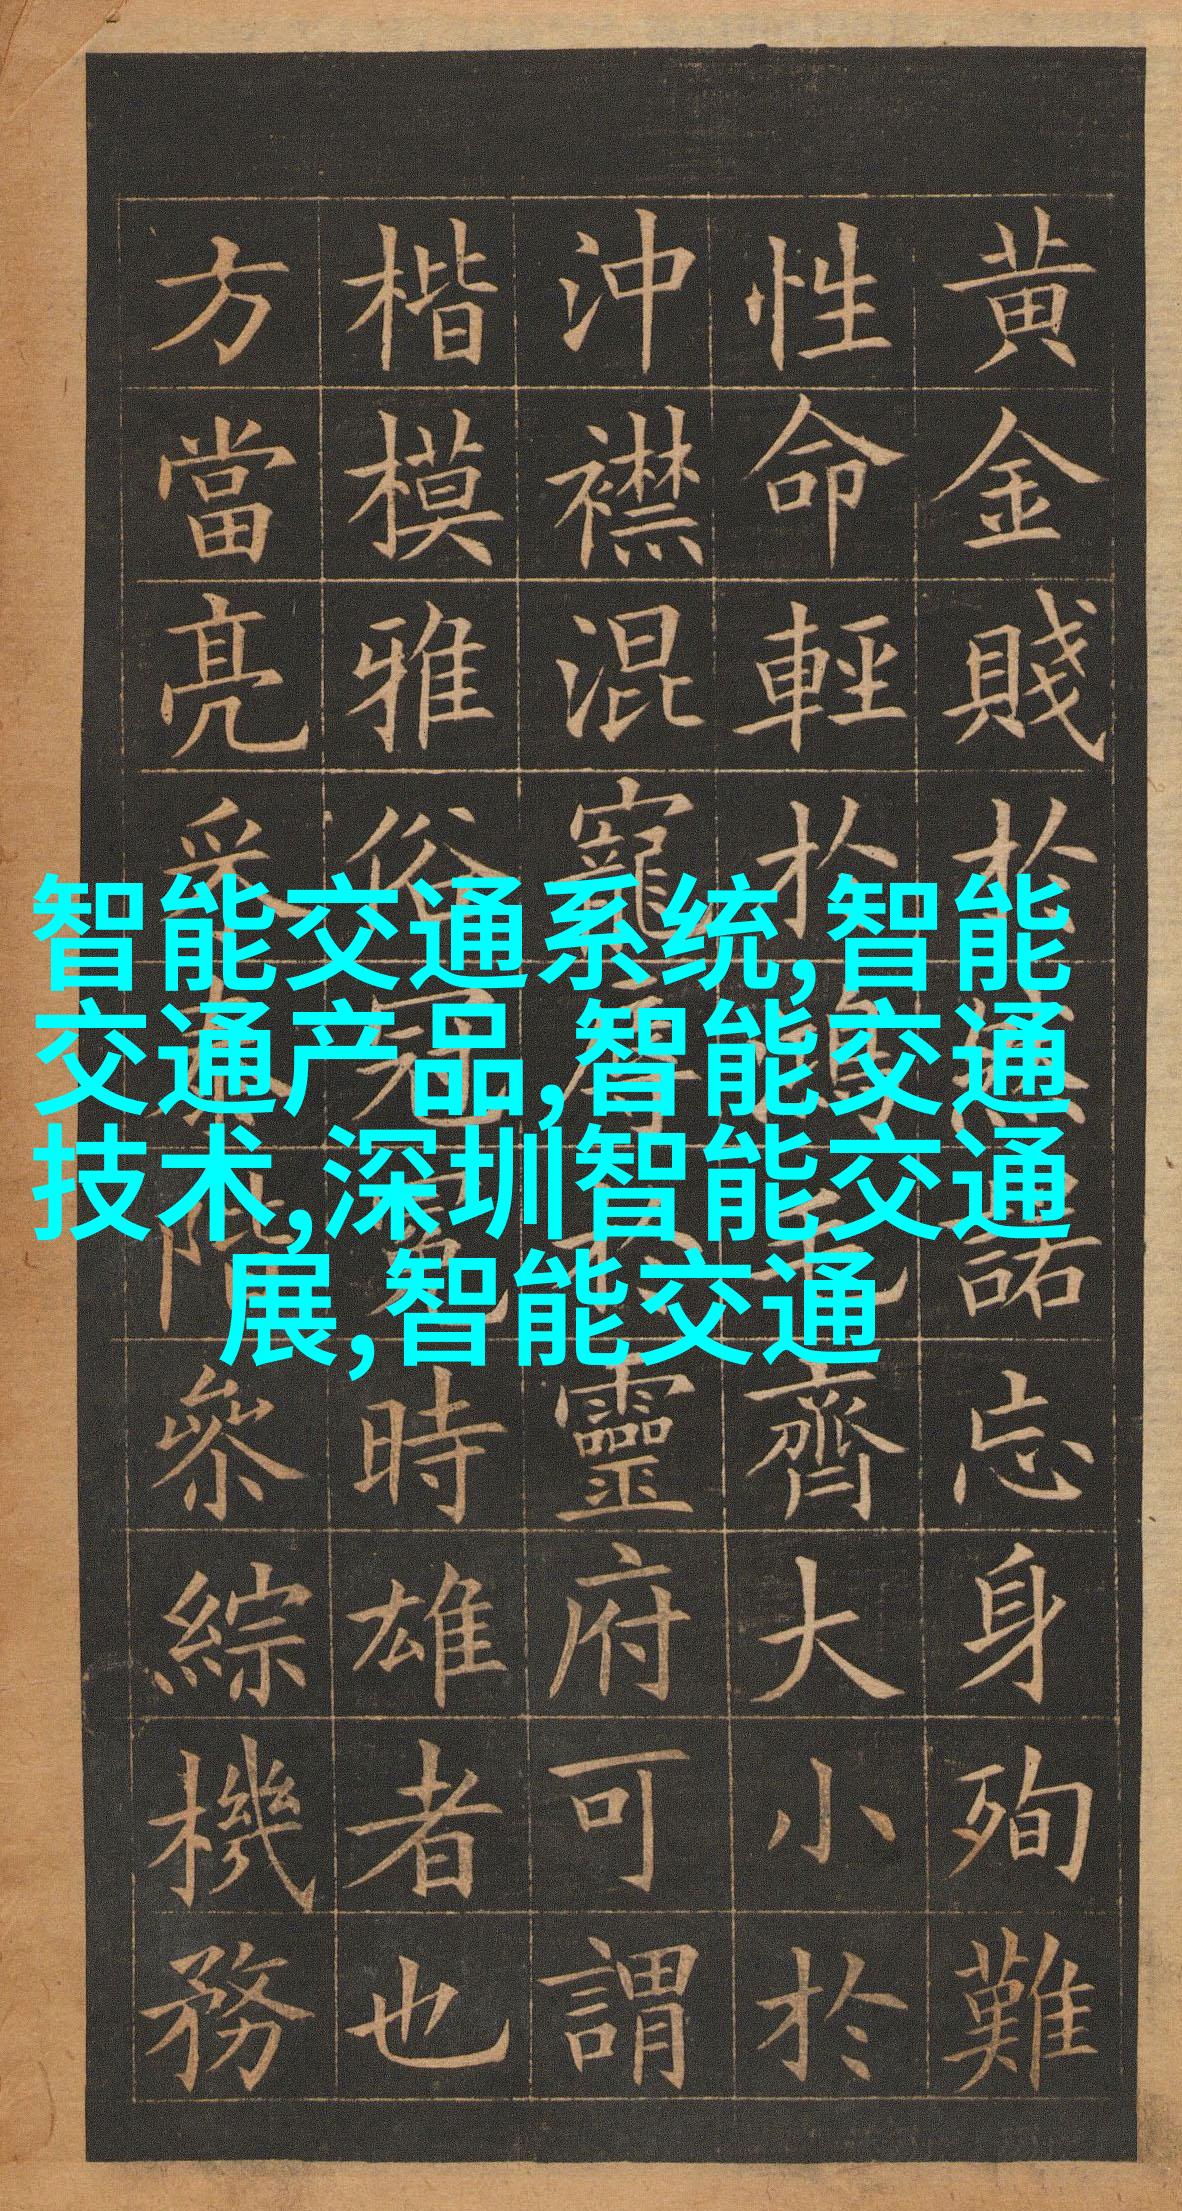 黄金賤於諾忘身殉難
性命輕於毛齊大小於
沖襟混寵辱靈府可謂
楷模雅俗冠冕時雄者也
方當亮采階參綜機務
智能交通系统,智能
交通产品,智能交通
技术,深圳智能交通
展,智能交通